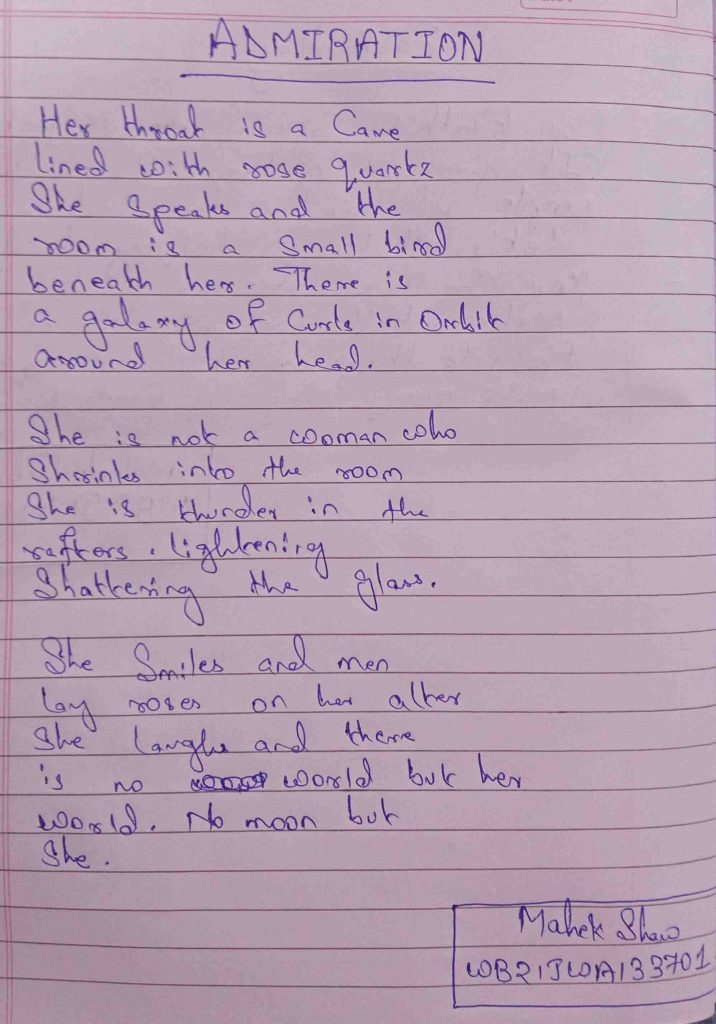 ADMIRATION
Her throat is a Cave
lined with rose quartz
She Speaks and the
room is a Small bird
beneath her. There is
a galaxy of Curls in Orbit
around her head.
She is not a wooman who
Shrinks into the room
She is thunder in the
rafters. lightening
Shattering the glass.
She Smiles and men
lay roses on her alter
She laughs and there
is no world but her
world. No moon but
She.
Mahek Shaw
WB21JWA133701